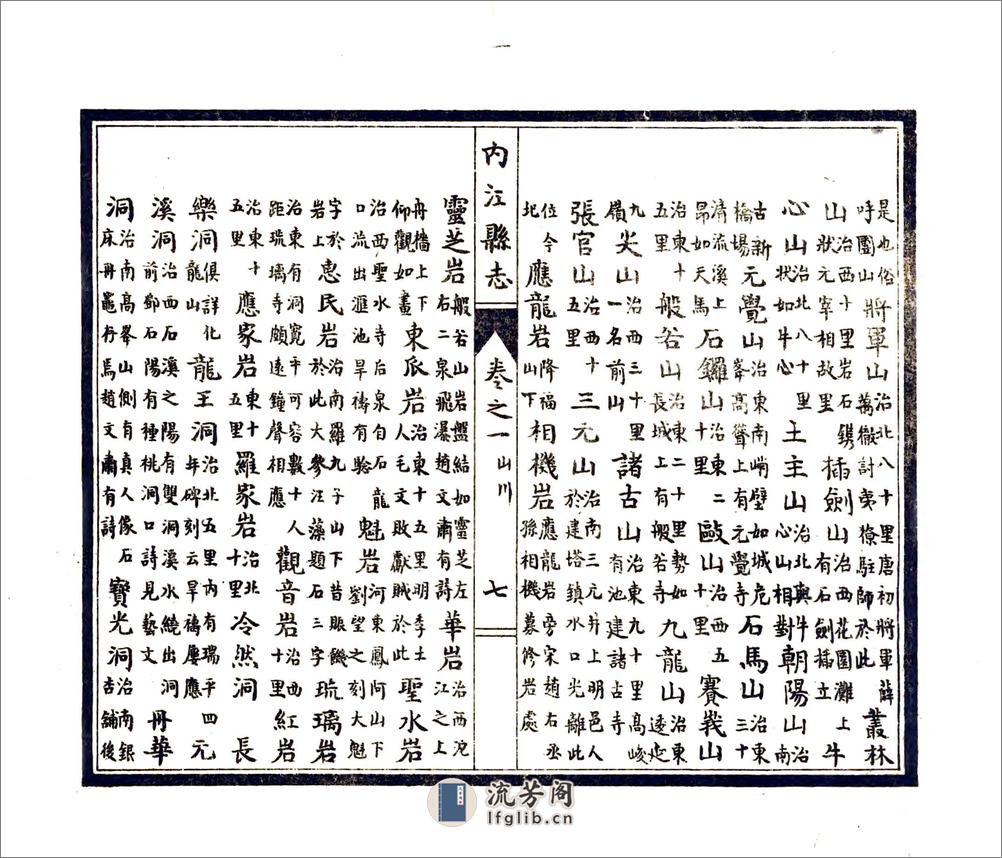 是也俗呼團山將軍山治北八十里唐初將軍薛萬徹討夷獠駐師於此叢林
山治西十里岩石鐫狀元宰相故里插劍山治西花園灘上有石劍插立牛
心山治北八十里狀如牛心土主山治北與牛心山相對朝陽山治南
古新橋場元覺山治東南峭壁如城危峯高聳上有元覺寺石馬山治東三十
清流溪上昂如天馬石鑼山治東二十里毆山治西五十里賽峩山
治東十五里般若山治東二十里勢如長城上有般若寺九龍山治東逶迤
九嶺尖山治西三十里一名前山諸古山治東九十里高峻有池建諸古寺
張官山治西十五里三元山治南三元井上明邑人於建塔鎮水口光離此
位今圯應龍岩降福山下相機岩應龍岩旁宋趙右丞孫相機募修岩處
內江縣志 卷之一 山川 七
靈芝岩般若山岩盤結如靈芝左右二泉飛瀑趙文肅有詩華岩治西沱江之上
舟檣上下仰觀如畫東瓜岩治東十五里明季土人毛文敗獻賊於此聖水岩
治西聖水寺后泉自石龍口流出滙池旱禱有驗魁岩河東鳳阿山下劉望之刻大魁
字於岩上惠民岩治南羅九子山下昔賑饑於此大參汪藻題石三字琉璃岩
治東有洞寬平可容數十人距琉璃寺頗遠鐘聲相應觀音岩治西十里紅岩
治東十五里應家岩治東十五里羅家岩治北十里冷然洞長
樂洞俱詳化龍山龍王洞治北五里內有瑞平四年碑刻云旱禱屢應元
溪洞治西石溪之陽有雙洞溪水繞出洞前鄧石陽有種桃洞口詩見藝文丹華
洞治南高峯山側有真人像石床丹竈存焉趙文肅有詩寶光洞治南銀杏鋪後
流芳阁
lfglib.cn